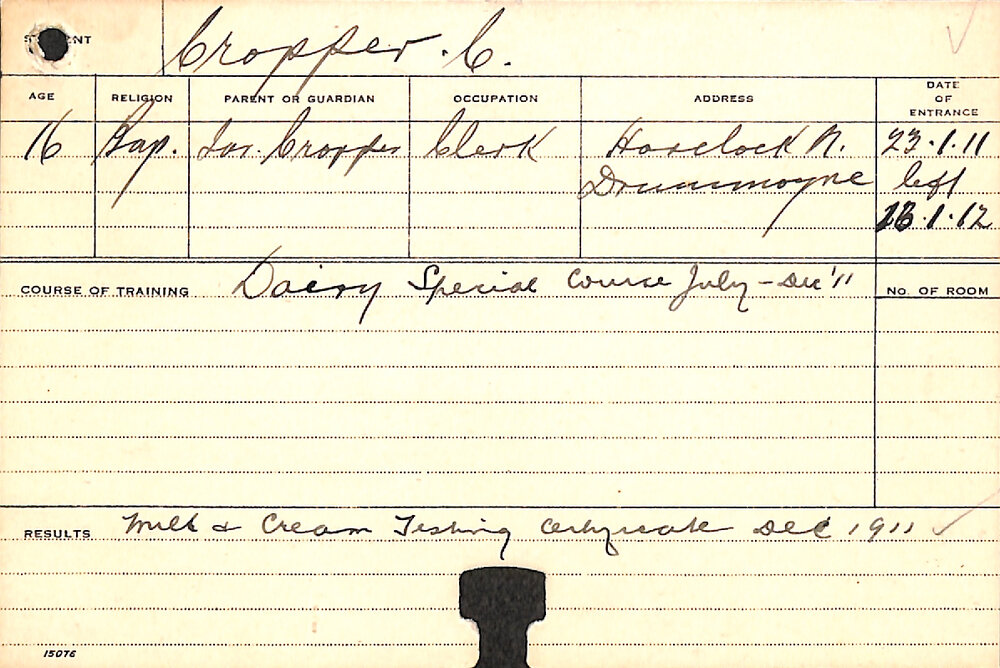 STUDENT Cropper. C.
AGE RELIGION PARENT OR GUARDIAN OCCUPATION ADDRESS DATE OF ENTRANCE
16 Bap. Jas. Cropper Clerk Havelock R. 23.1.11
Drummoyne left
23.1.12
COURSE OF TRAINING Dairy Special Course July - Dec '11 No. OF ROOM
RESULTS Milk & Cream Testing Certificate Dec 1911
15076